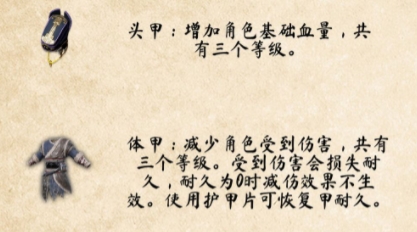 头甲：增加角色基础血量，共
有三个等级。
体甲：减少角色受到伤害，共有
三个等级。受到伤害会损失耐
久，耐久为0时减伤效果不生
效。使用护甲片可恢复甲耐久。